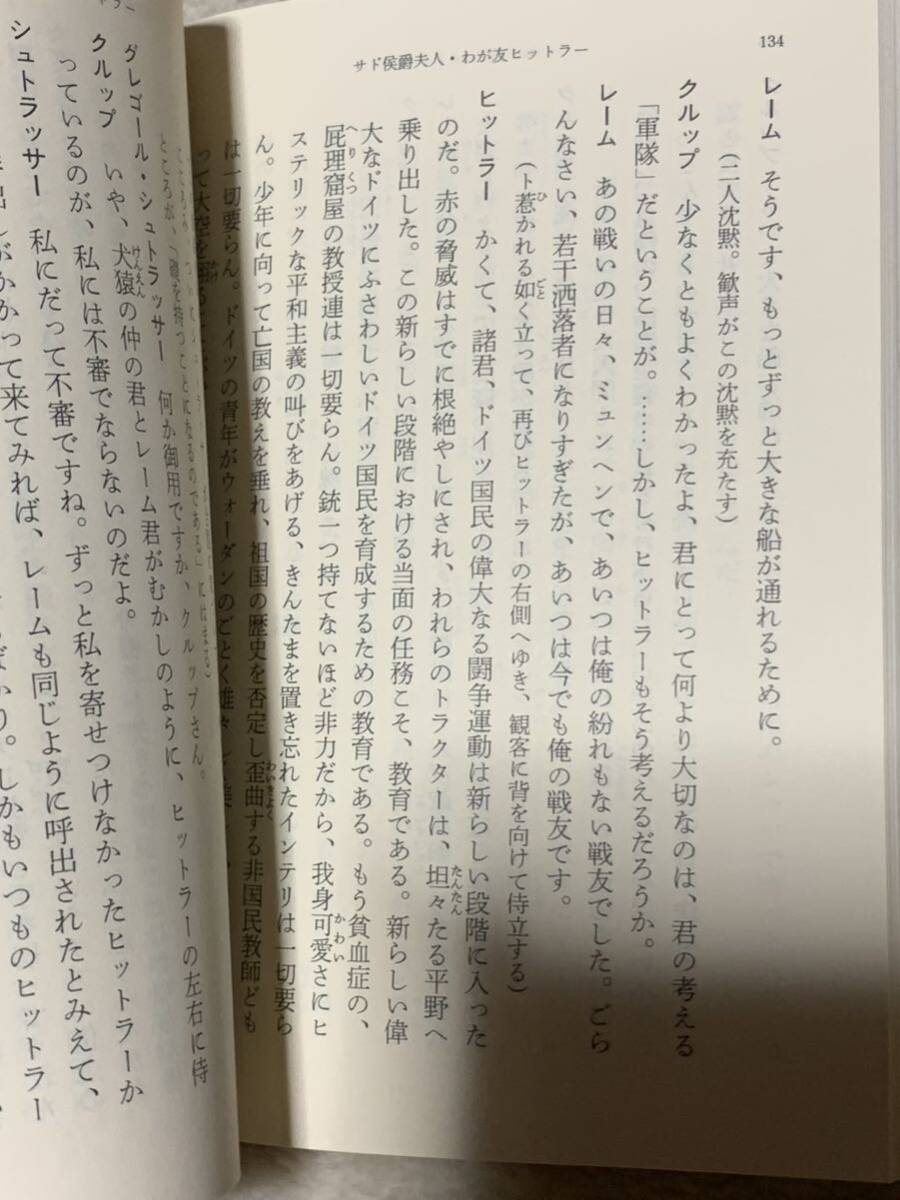 134
サド侯爵夫人・わが友ヒットラー
レーム　そうです、もっとずっと大きな船が通れるために。
（二人沈黙。歓声がこの沈黙を充たす）
クルップ　少なくともよくわかったよ、君にとって何より大切なのは、君の考える
「軍隊」だということが。……しかし、ヒットラーもそう考えるだろうか。
レーム　あの戦いの日々、ミュンヘンで、あいつは俺の紛れもない戦友でした。ごら
んなさい、若干洒落者になりすぎたが、あいつは今でも俺の戦友です。
（ト惹かれる如く立って、再びヒットラーの右側へゆき、観客に背を向けて侍立する）
ヒットラー　かくて、諸君、ドイツ国民の偉大なる闘争運動は新らしい段階に入った
のだ。赤の脅威はすでに根絶やしにされ、われらのトラクターは、坦々たる平野へ
乗り出した。この新らしい段階における当面の任務こそ、教育である。新らしい偉
大なドイツにふさわしいドイツ国民を育成するための教育である。もう貧血症の、
屁理窟屋の教授連は一切要らん。銃一つ持てないほど非力だから、我身可愛さにヒ
ステリックな平和主義の叫びをあげる、きんたまを置き忘れたインテリは一切要ら
ん。少年に向って亡国の教えを垂れ、祖国の歴史を否定し歪曲する非国民教師ども
は一切要らん。ドイツの青年がウォーダンのごとく雄々しく
って大空を
ところが、
を持つことになるのである」にはまる）
グレゴール・シュトラッサー　何か御用ですか、クルップさん。
ヒットラーの左右に侍
クルップ　いや、犬猿の仲の君とレーム君がむかしのように、
っているのが、私には不審でならないのだよ。
シュトラッサー　私にだって不審ですね。ずっと私を寄せつけなかったヒットラーか
がかかって来てみれば、レームも同じように呼出されたとみえて、
ばかり。しかもいつものヒットラー